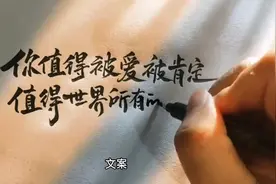 你值得被爱被肯定
值得世界所有
文案